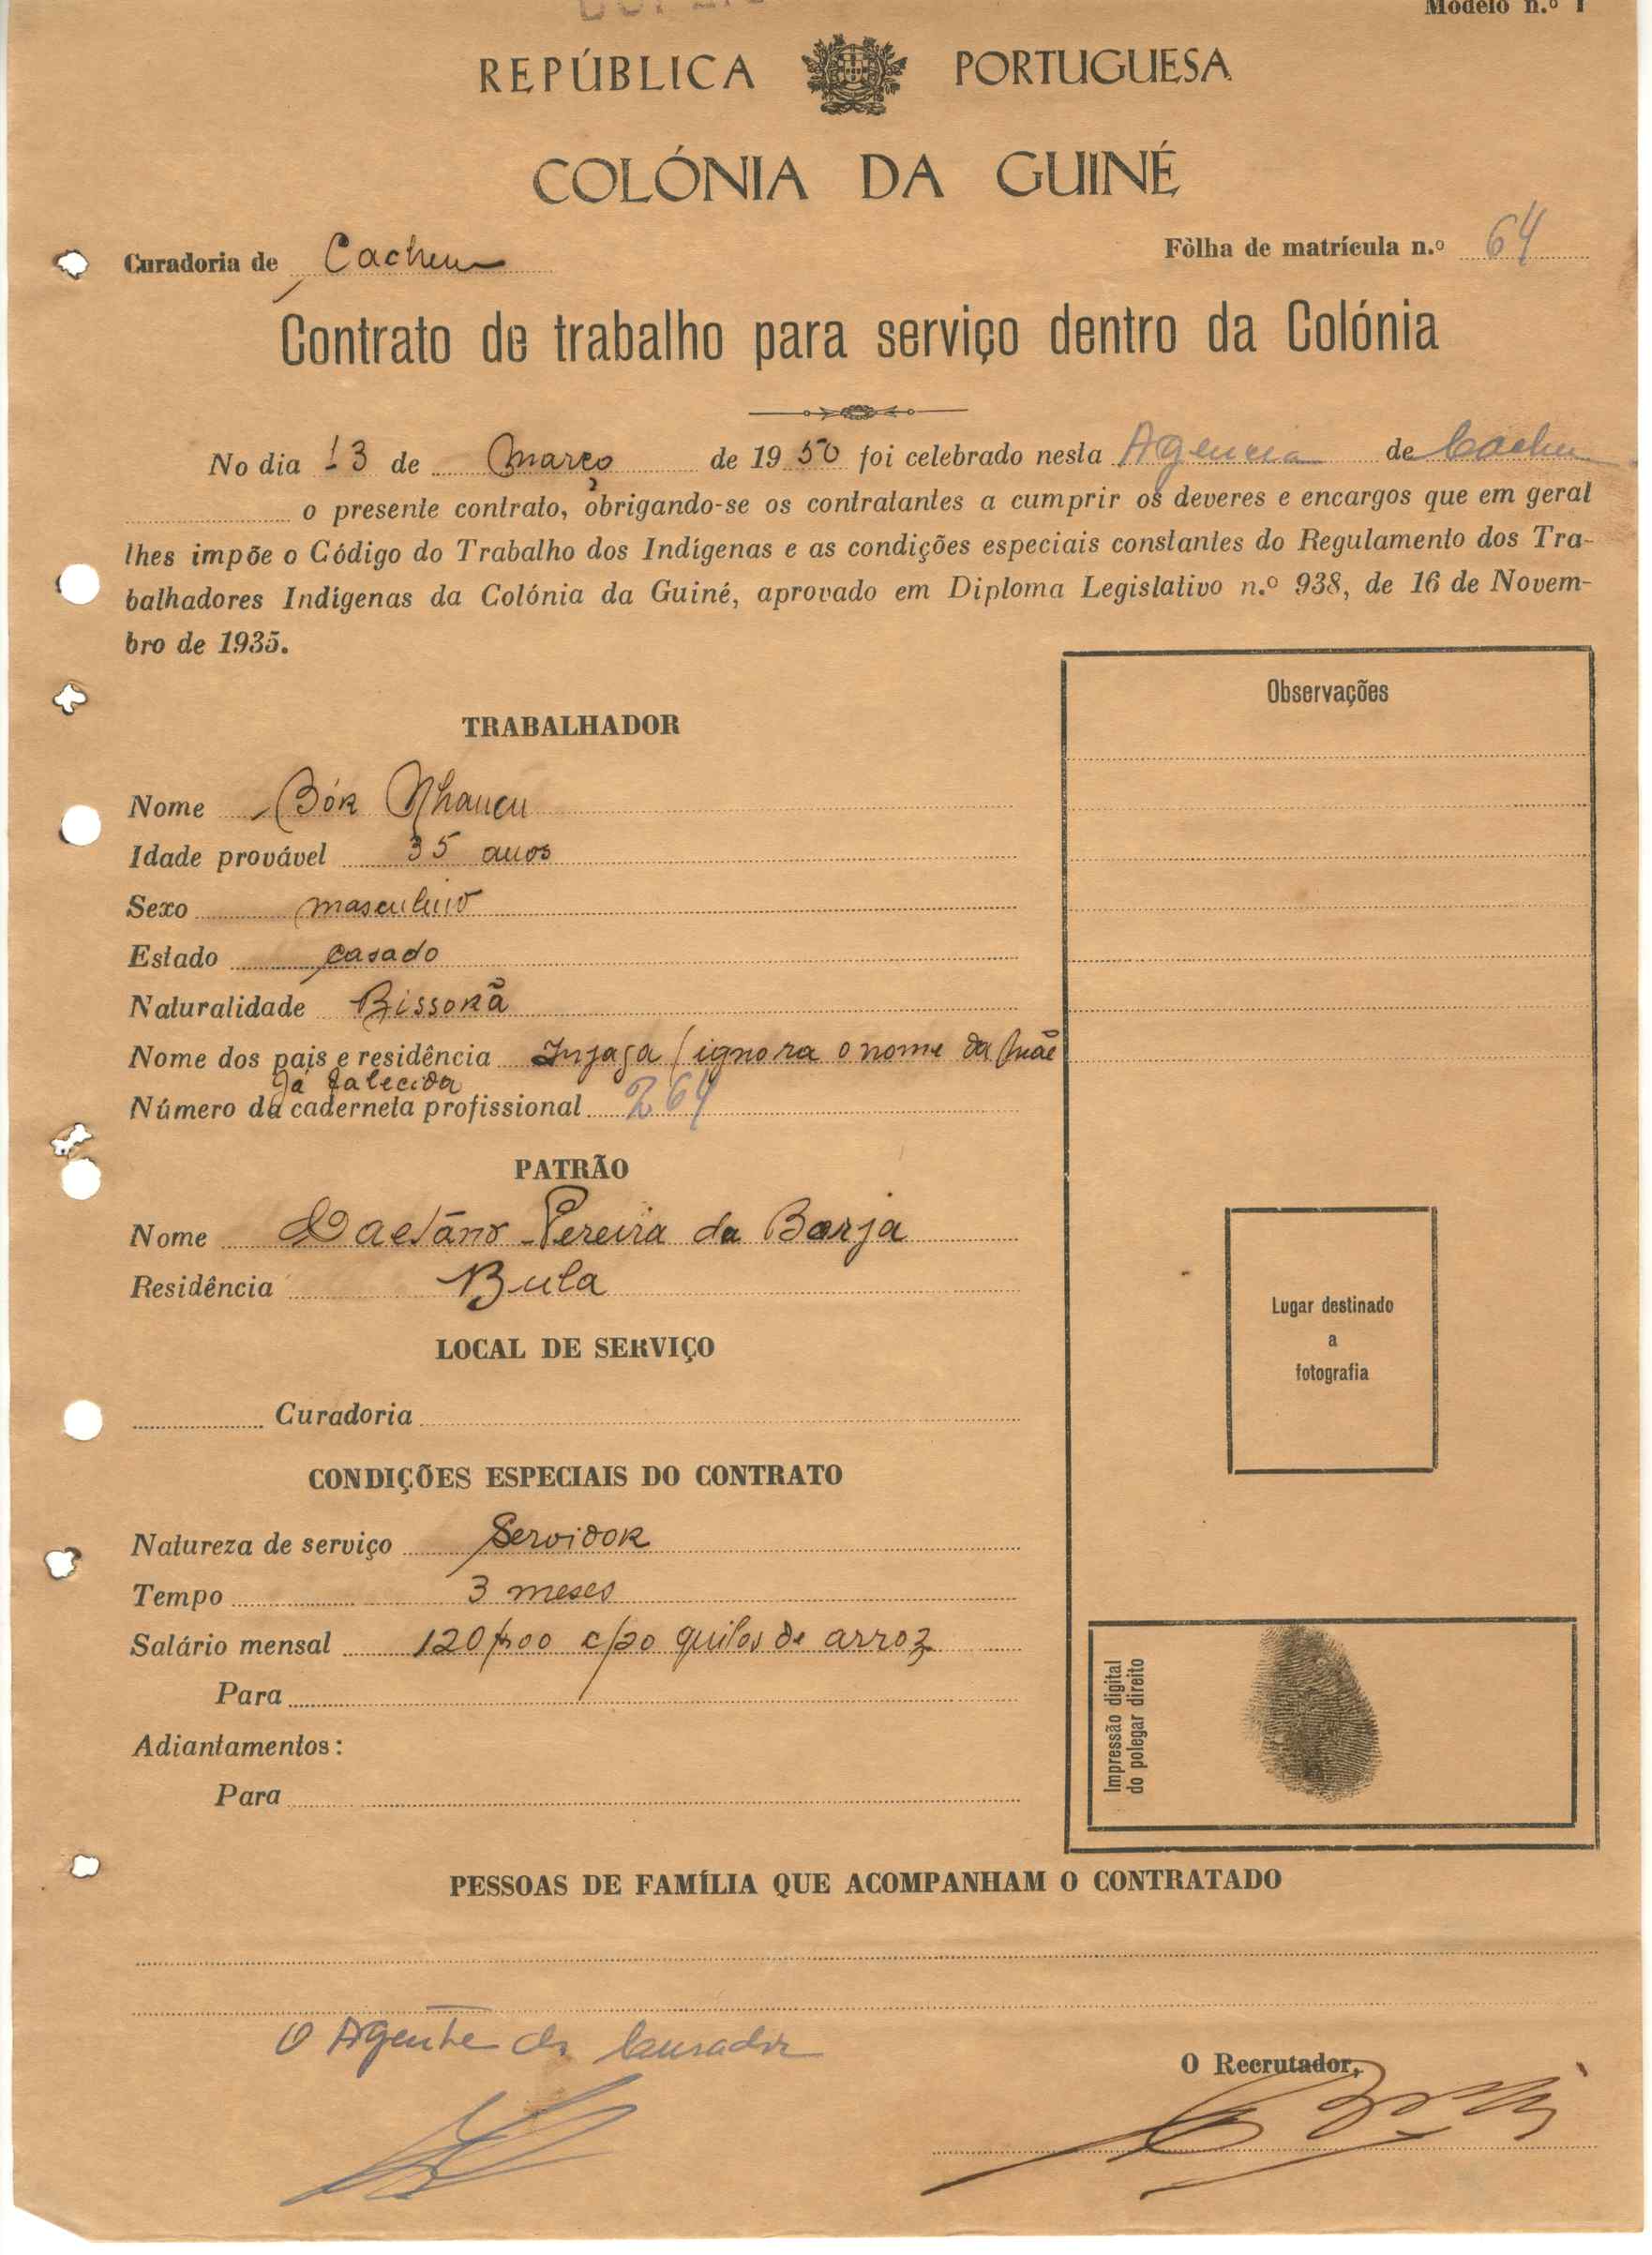 Modelo n.º 1
REPÚBLICA PORTUGUESA
COLÓNIA DA GUINÉ
Curadoria de Cacheu
Fôlha de matrícula n.º 64
Contrato de trabalho para serviço dentro da Colónia
No dia 13 de Março de 1950 foi celebrado nesta Agencia de Cacheu
o presente contrato, obrigando-se os contratantes a cumprir os deveres e encargos que em geral
lhes impõe o Código do Trabalho dos Indígenas e as condições especiais constantes do Regulamento dos Tra-
balhadores Indígenas da Colónia da Guiné, aprovado em Diploma Legislativo n.º 938, de 16 de Novem-
bro de 1935.
Observações
TRABALHADOR
Nome Bór
Idade provável 35 anos
Sexo masculino
Estado casado
Naturalidade Bissorã
Nome dos pais e residência Injaga / ignora o nome da mãe
já falecida
Número da caderneta profissional 264
PATRÃO
Nome Caetâno Pereira da Borja
Residência Bula
Lugar destinado
a
fotografia
LOCAL DE SERVIÇO
Curadoria
CONDIÇÕES ESPECIAIS DO CONTRATO
Natureza de serviço Servidor
Tempo 3 meses
Salário mensal 120$00 quilos de arroz
Para
Adiantamentos:
Para
Impressão digital
do polegar direito
PESSOAS DE FAMÍLIA QUE ACOMPANHAM O CONTRATADO
O Agente do Curador
O Recrutador,